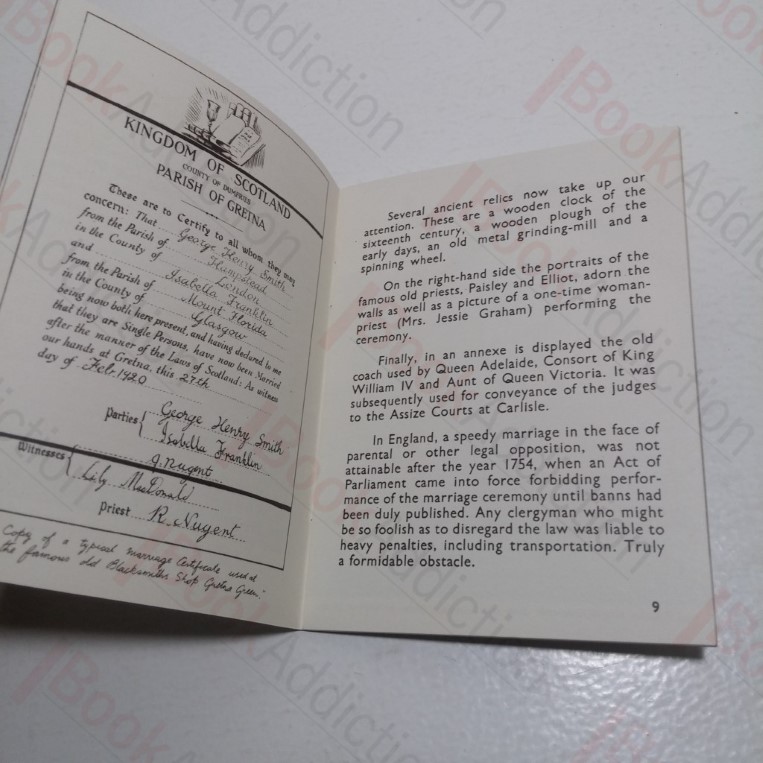 KINGDOM OF SCOTLAND
COUNTY OF DUMFRIES
PARISH OF GRETNA
These are to Certify to all whom they may
concern: That George Henry Smith
from the Parish of Hampstead
in the County of London
and Isabella Franklin
from the Parish of Mount Florida
in the County of Glasgow
being now both here present, and having declared to me
that they are Single Persons, have now been Married
after the manner of the Laws of Scotland: As witness
our hands at Gretna, this 27th
day of Feb. 1920
Parties George Henry Smith
Isabella Franklin
Witnesses J. Nugent
Lily McDonald
Priest R. Nugent
Copy of a typical marriage Certificate used at
the famous old Blacksmiths Shop Gretna Green.
Several ancient relics now take up our
attention. These are a wooden clock of the
sixteenth century, a wooden plough of the
early days, an old metal grinding-mill and a
spinning wheel.
On the right-hand side the portraits of the
famous old priests, Paisley and Elliot, adorn the
walls as well as a picture of a one-time woman-
priest (Mrs. Jessie Graham) performing the
ceremony.
Finally, in an annexe is displayed the old
coach used by Queen Adelaide, Consort of King
William IV and Aunt of Queen Victoria. It was
subsequently used for conveyance of the judges
to the Assize Courts at Carlisle.
In England, a speedy marriage in the face of
parental or other legal opposition, was not
attainable after the year 1754, when an Act of
Parliament came into force forbidding perfor-
mance of the marriage ceremony until banns had
been duly published. Any clergyman who might
be so foolish as to disregard the law was liable to
heavy penalties, including transportation. Truly
a formidable obstacle.
9
BookAddiction